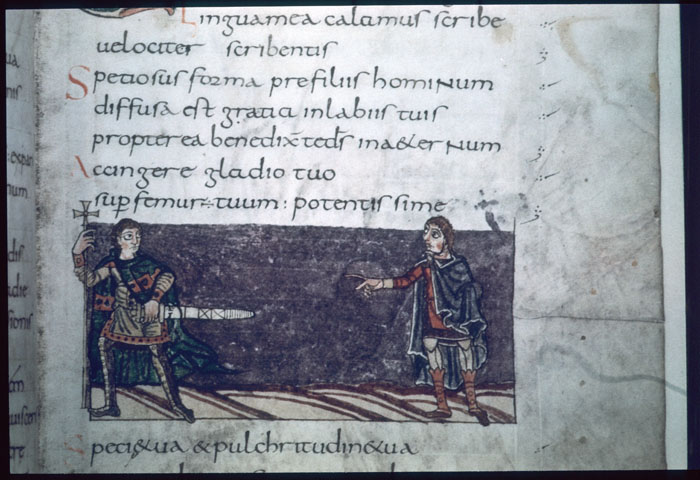 Lingua mea calamus scribe
velociter scribentis
Speciosus forma prefiliis hominum
diffusa est gratia inlabiis tuis
propterea benedix te ds inaeternum
Accingere gladio tuo
sup femur tuum : potentissime
Specie tua & pulchritudine tua